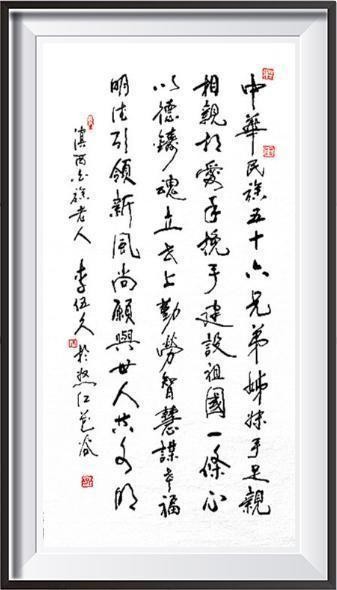 中華民族五十六兄弟姊妹手足親
相親相愛手挽手建設祖國一條心
以德鑄魂立志上勤勞智慧謀幸福
明法引領新風尚願與世人共文明
滇西白族老人 李伍久 於怒江谷